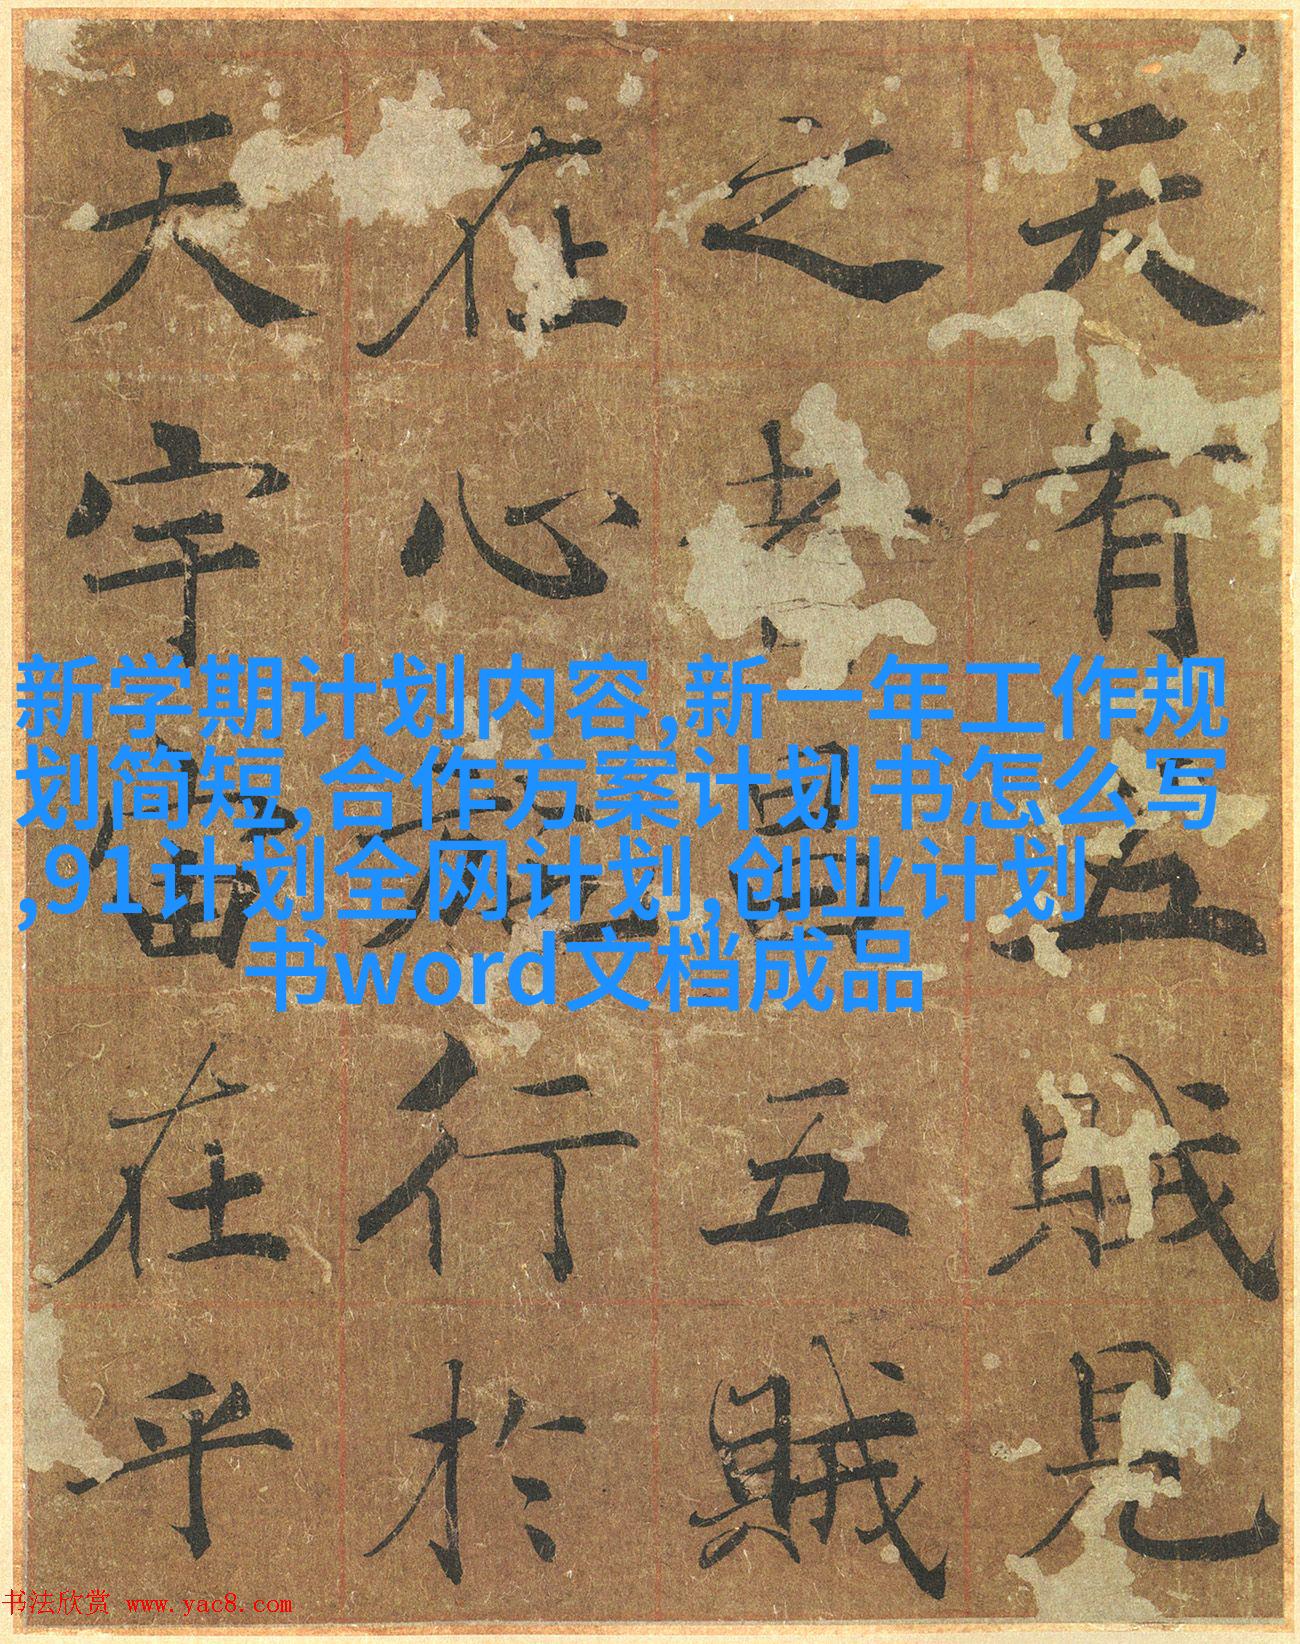 天有五賊見
之者昌五賊
在心施行於
天宇宙在乎
新学期计划内容,新一年工作规
划简短,合作方案计划书怎么写
,91计划全网计划,创业计划
书word文档成品
书法欣赏 www.yac8.com